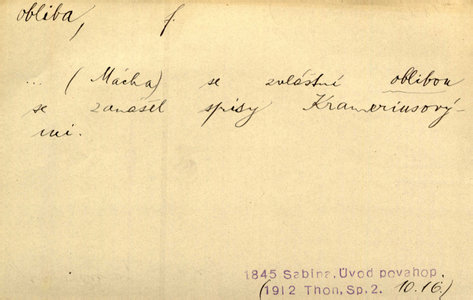 obliba, f.
... (Mácha) se zvláštní oblibou
se zanášel spisy Krameriusový-
mi.
1845 Sabina, Úvod povahop.
(1912 Thon, Sp. 2. 10.16.)